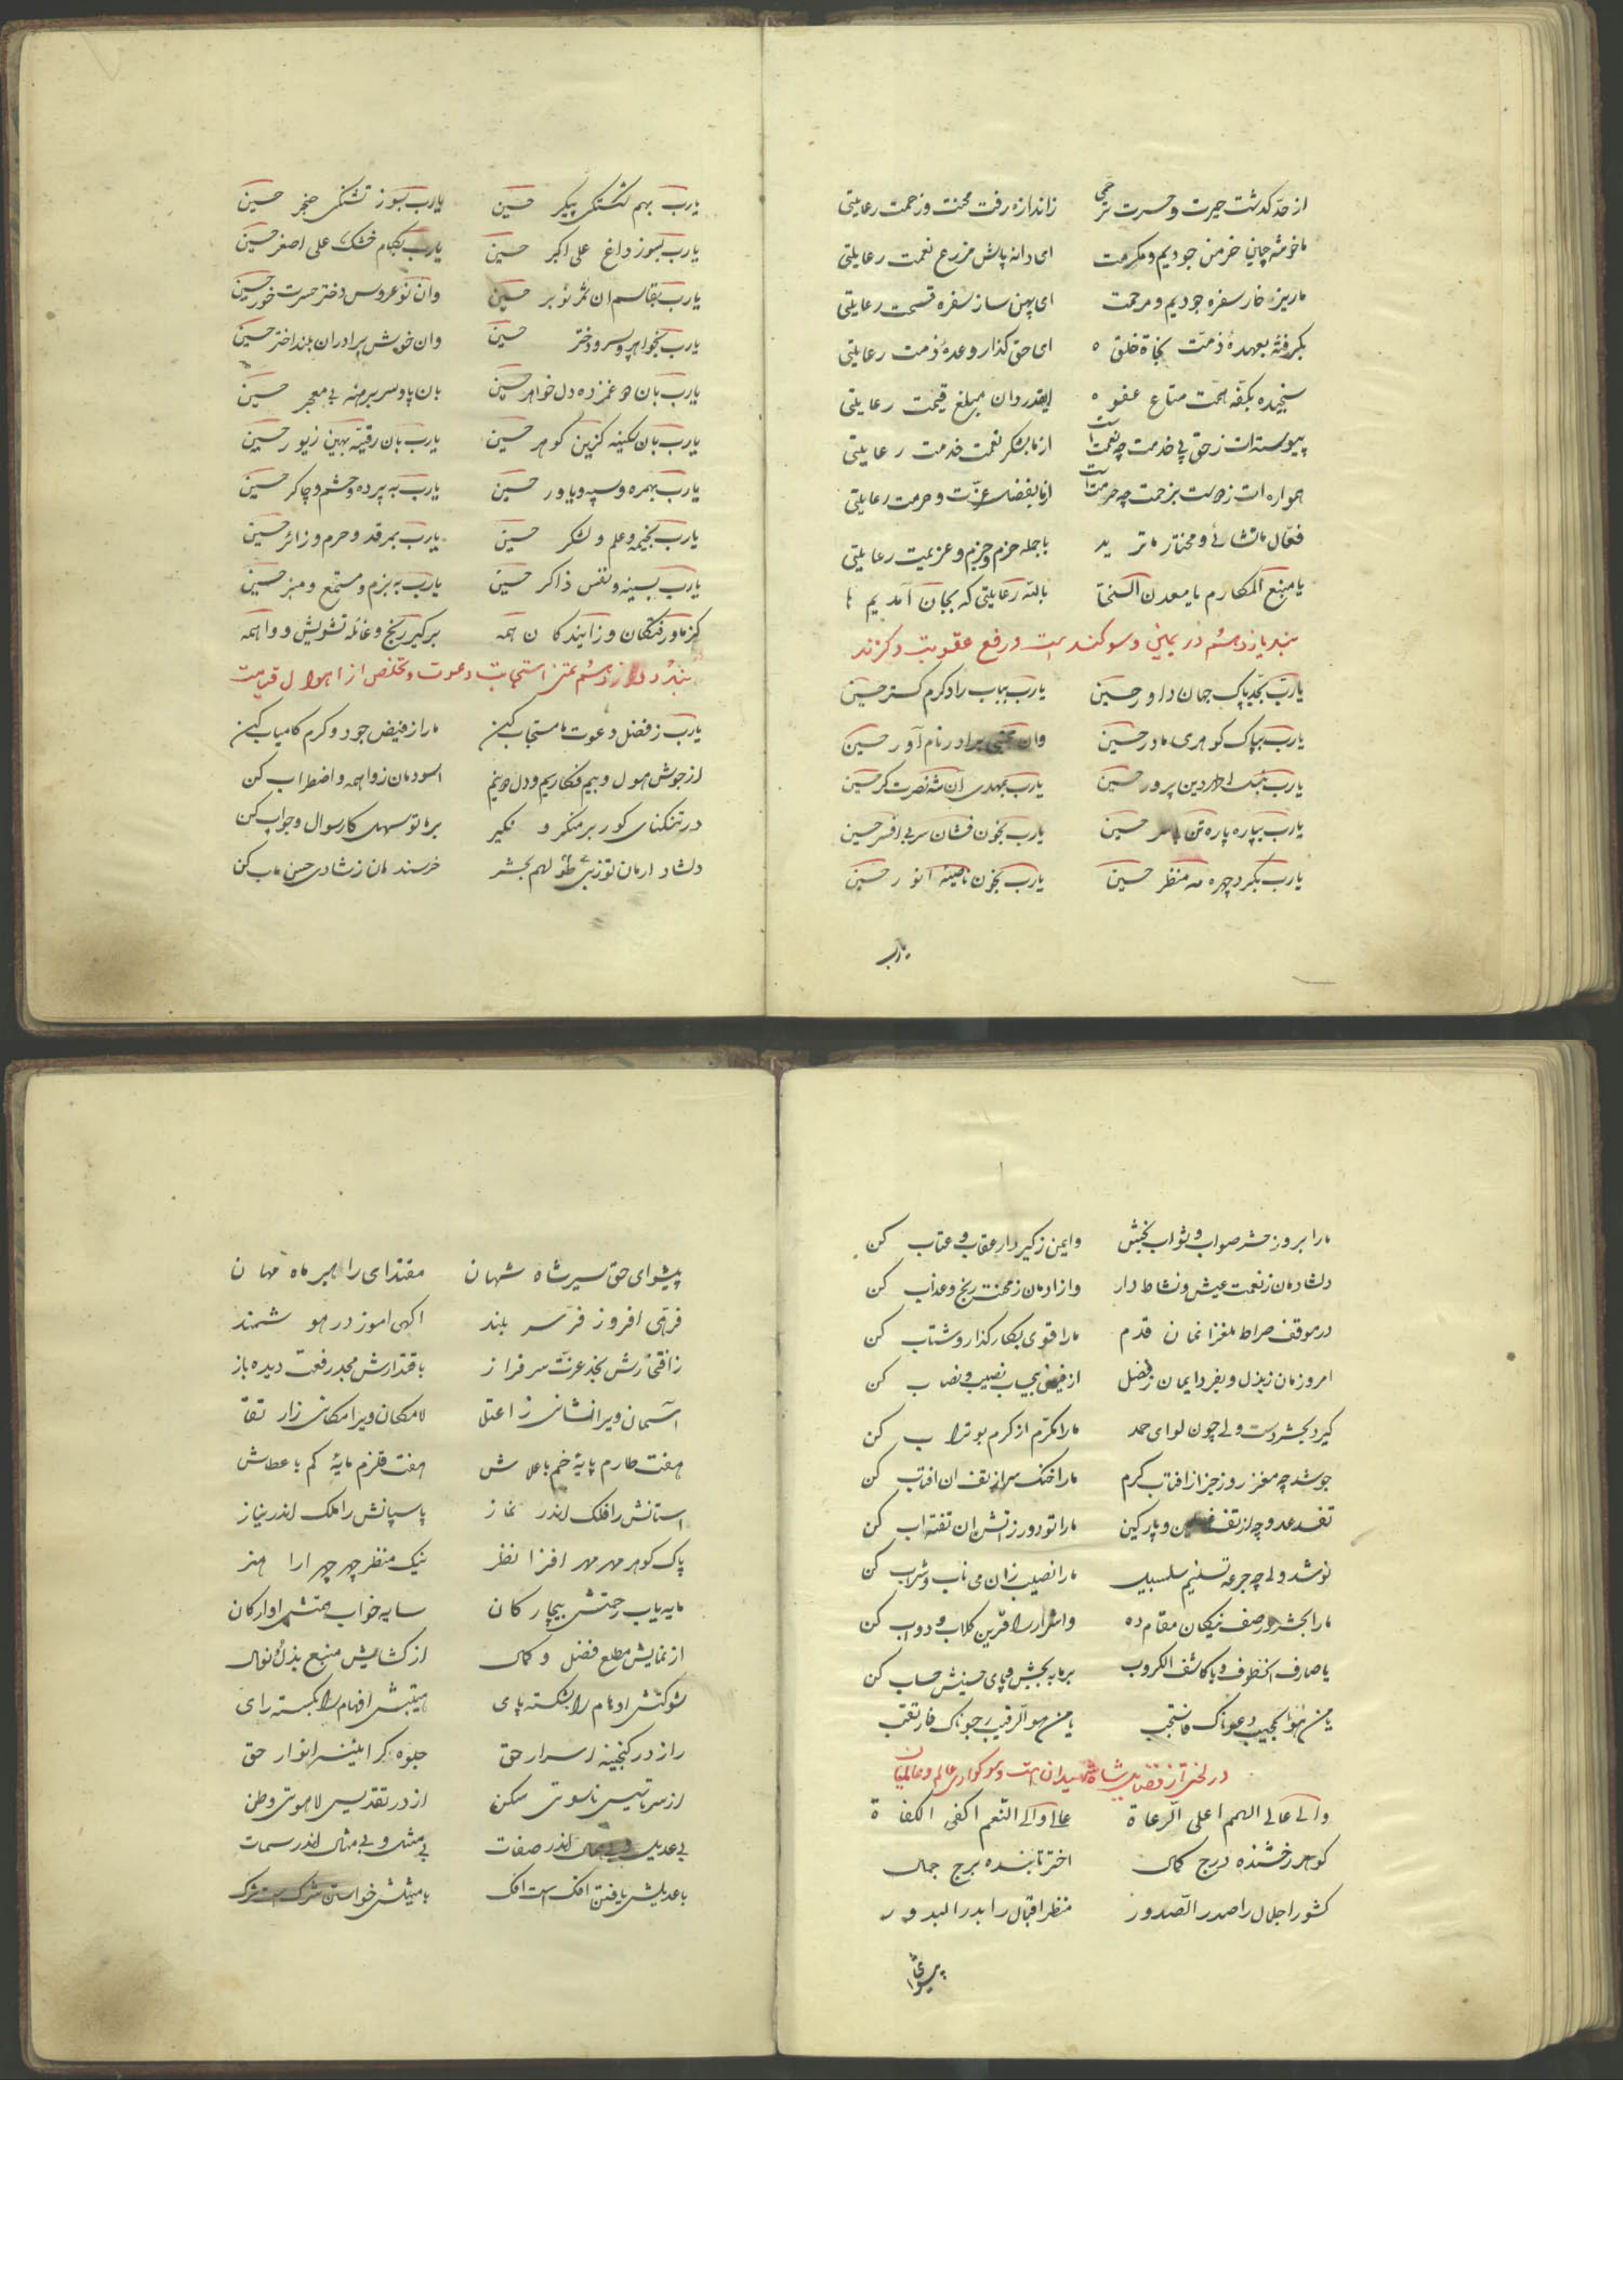 از حد گذشت حیرت و حسرت ترحمی زاندازه رفت محنت و زحمت رعایتی
ما خوشه چین خرمن جودیم و مکرمت ای دانه پاش مزرع نعمت رعایتی
ما ریزه خار سفره جودیم و مرحمت ای پهن ساز سفره قسمت رعایتی
بگرفته بعهدهٔ ذمت نجاة خلق ای حق گذار وعدهٔ ذمت رعایتی
سنجیده بکفه همت متاع عفو ایقدردان مبلغ قیمت رعایتی
پیوسته ات ز حق پی خدمت چه نعمت است از ما بشکر نعمت خدمت رعایتی
همواره ات بزحمت چه حرمت است از ما بفضل عزت و حرمت رعایتی
فعّال ما تشائی و مختار ما ترید با جمله حزم و جزم و عزیمت رعایتی
یا منبع المکارم یا معدن السخا بالله رعایتی که بجان آمدیم ما
بند یازدهم در یمین و سوکند است و رفع عقوبت و کزند
یارب بجد پاک جهان داور حسین یارب بباب راد کرم کستر حسین
یارب بپاک کوهری مادر حسین وان مجتبی برادر نام آور حسین
یارب دین پرور حسین یارب بمهدی ان شه نصرت کر حسین
یارب بپاره پاره تن حسین یارب بخون فشان سر بی افسر حسین
یارب بگرد چهره مه منظر حسین یارب بخون ناصیه انور حسین
یارب
یارب بهم شکستگی پیکر حسین یارب بسوز تشنگی حنجر حسین
یارب بسوز داغ علی اکبر حسین یارب بکام خشک علی اصغر حسین
یارب بقاسم ان ثمر نوبر حسین وان نوعروس دختر حسرت خور حسین
یارب بخواهر و پسر و دختر حسین وان خوش برادران بلند اختر حسین
یارب بان غمزده دل خواهر حسین بان پا و سر برهنه بی معجر حسین
یارب بان سکینه کزین کوهر حسین یارب بان رقیه بهین زیور حسین
یارب بهمره و سپه و یاور حسین یارب به پرده و حشم و چاکر حسین
یارب بخیمه و علم و لشکر حسین یارب بمرقد و حرم و زائر حسین
یارب بسینه و نفس ذاکر حسین یارب به بزم و مستمع و منبر حسین
کز ما و رفتکان و زایندکان همه برکیر رنج و غائله تشویش و واهمه
بند دوازدهم تمنی استجابت دعوت و تخلص از اهوال قیامت
یارب ز فضل دعوت ما مستجاب کن ما را ز فیض جود و کرم کامیاب کن
از جوش هول و بیم فکاریم و دل دونیم اسودمان ز واهمه و اضطراب کن
در تنکنای کور بر منکر و نکیر بر ما تو سهل کار سوال و جواب کن
دلشاد ارمان تو ز لهم بحشر خرسندمان ز شادی حسن ماب کن
ما را بروز حشر صواب و ثواب بخش وایمن ز کیر دار عقاب و عتاب کن
دلشادمان ز نعمت عیش و نشاط دار وازادمان ز محنت رنج و عذاب کن
در موقف صراط ملغزانمان قدم ما را قوی بکار کذار و شتاب کن
امروزمان ز بذل و بفردایمان ز فضل از فیض بیحساب نصیب و نصاب کن
کیرد بحشر دست ولی چون لوای حمد ما را مکرم از کرم بوتراب کن
جوشد چه مغز روز جزا ز افتاب کرم ما را خنک سر از تف ان افتاب کن
تفسد عدو چه از تف و پارکین ما را تو دور ز اتش ان تفته اب کن
نوشد ولی چه جرعه تسنیم سلسبیل ما را نصیب زان می ناب و شراب کن
ما را بحشر در صف نیکان مقام ده واشرار را قرین کلاب و دواب کن
یا صارف الخطوف و یا کاشف الکروب بر ما ببخش و پای حسینش حساب کن
یا من هو المجیب دعوناک فاستجب یا من هو الرقیب رجوناک فارتقب
در لختی از فضایل شاه شهیدان است و سوکواری عالم و عالمیان
والی عالی الهمم اعلی الرعاة عالی والی النعم اکفی الکفاة
کوهر رخشنده درج کمال اختر تابنده برج جمال
کشور اجلال را صدر الصدور منظر اقبال را بدر البدور
پیشوای
پیشوای حق سیر شاه شهان مقتدای راهبر ماه مهان
فرهی افروز فر سربلند اکهی اموز در هوشمند
ز افتخارش نجد عزت سرفراز باقتدارش مجد رفعت دیده باز
آسمان ویرا نشانی ز اعتلا لامکان ویرا مکانی ز ارتقا
هفت طارم پایهٔ خم باعلاش هفت قلزم مایهٔ کم باعطاش
استانش را فلک اندر نماز پاسپانش را ملک اندر نیاز
پاک کوهر مهر مهر افزا نظر نیک منظر چهر چهر ارا هنر
مایه یاب رحمتش بیچارکان سایه خواب همتش اوارکان
از نمایش مطلع فضل و کمال از کشایش منبع بذل و نوال
شوکتش اوهام را بشکسته پای هیبتش افهام را بکسسته رای
راز در کنجینه اسرار حق جلوه کر ائینه انوار حق
از سر تاسیس ناسوتی سکن از در تقدیس لاهوتی وطن
بی عدیل اندر صفات بی مثل و بی مثال اندر سمات
با عدیلش یافتن افک است افک با مثیلش خواستن شرک است شرک